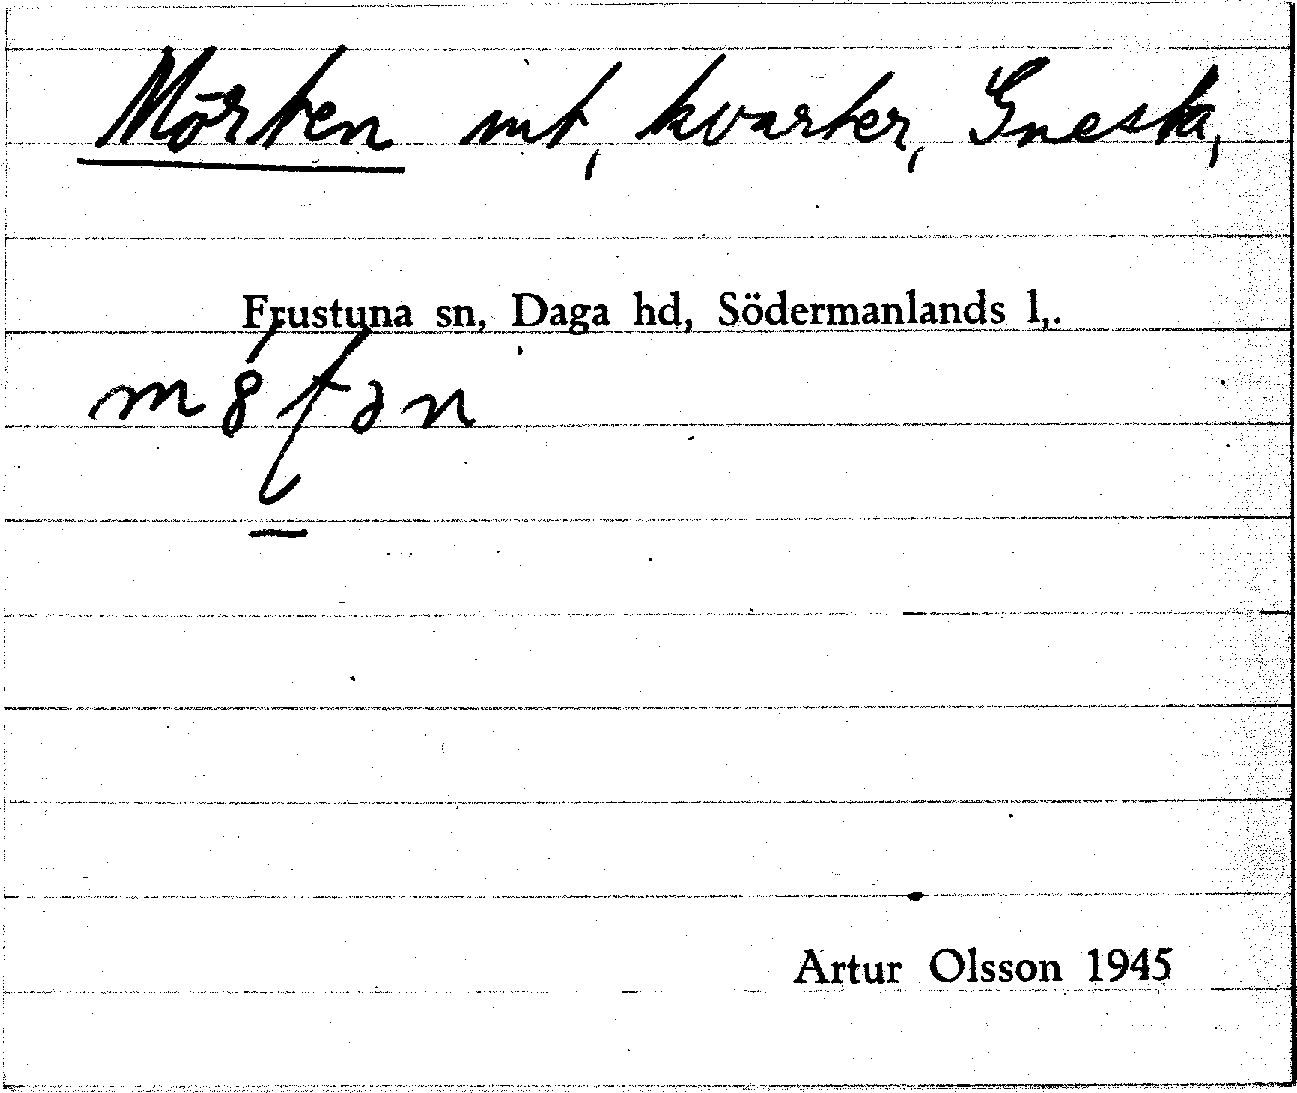 Mörten mt, kvarter, Gnesta,
Frustuna sn, Daga hd, Södermanlands l,.
Artur Olsson 1945